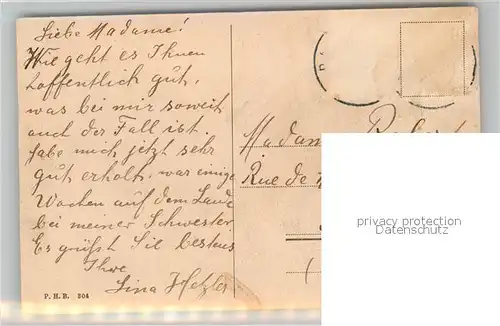 Liebe Madame!
Wie geht es Ihnen
hoffentlich gut,
was bei mir soweit
auch der Fall ist.
habe mich jetzt sehr
gut erholt, war einige
Wochen auf dem Lande
bei meiner Schwester
Es grüßt Sie bestens
Ihre
Lina
P. H. B. 304
Madame
Rue de
privacy protection
Datenschutz